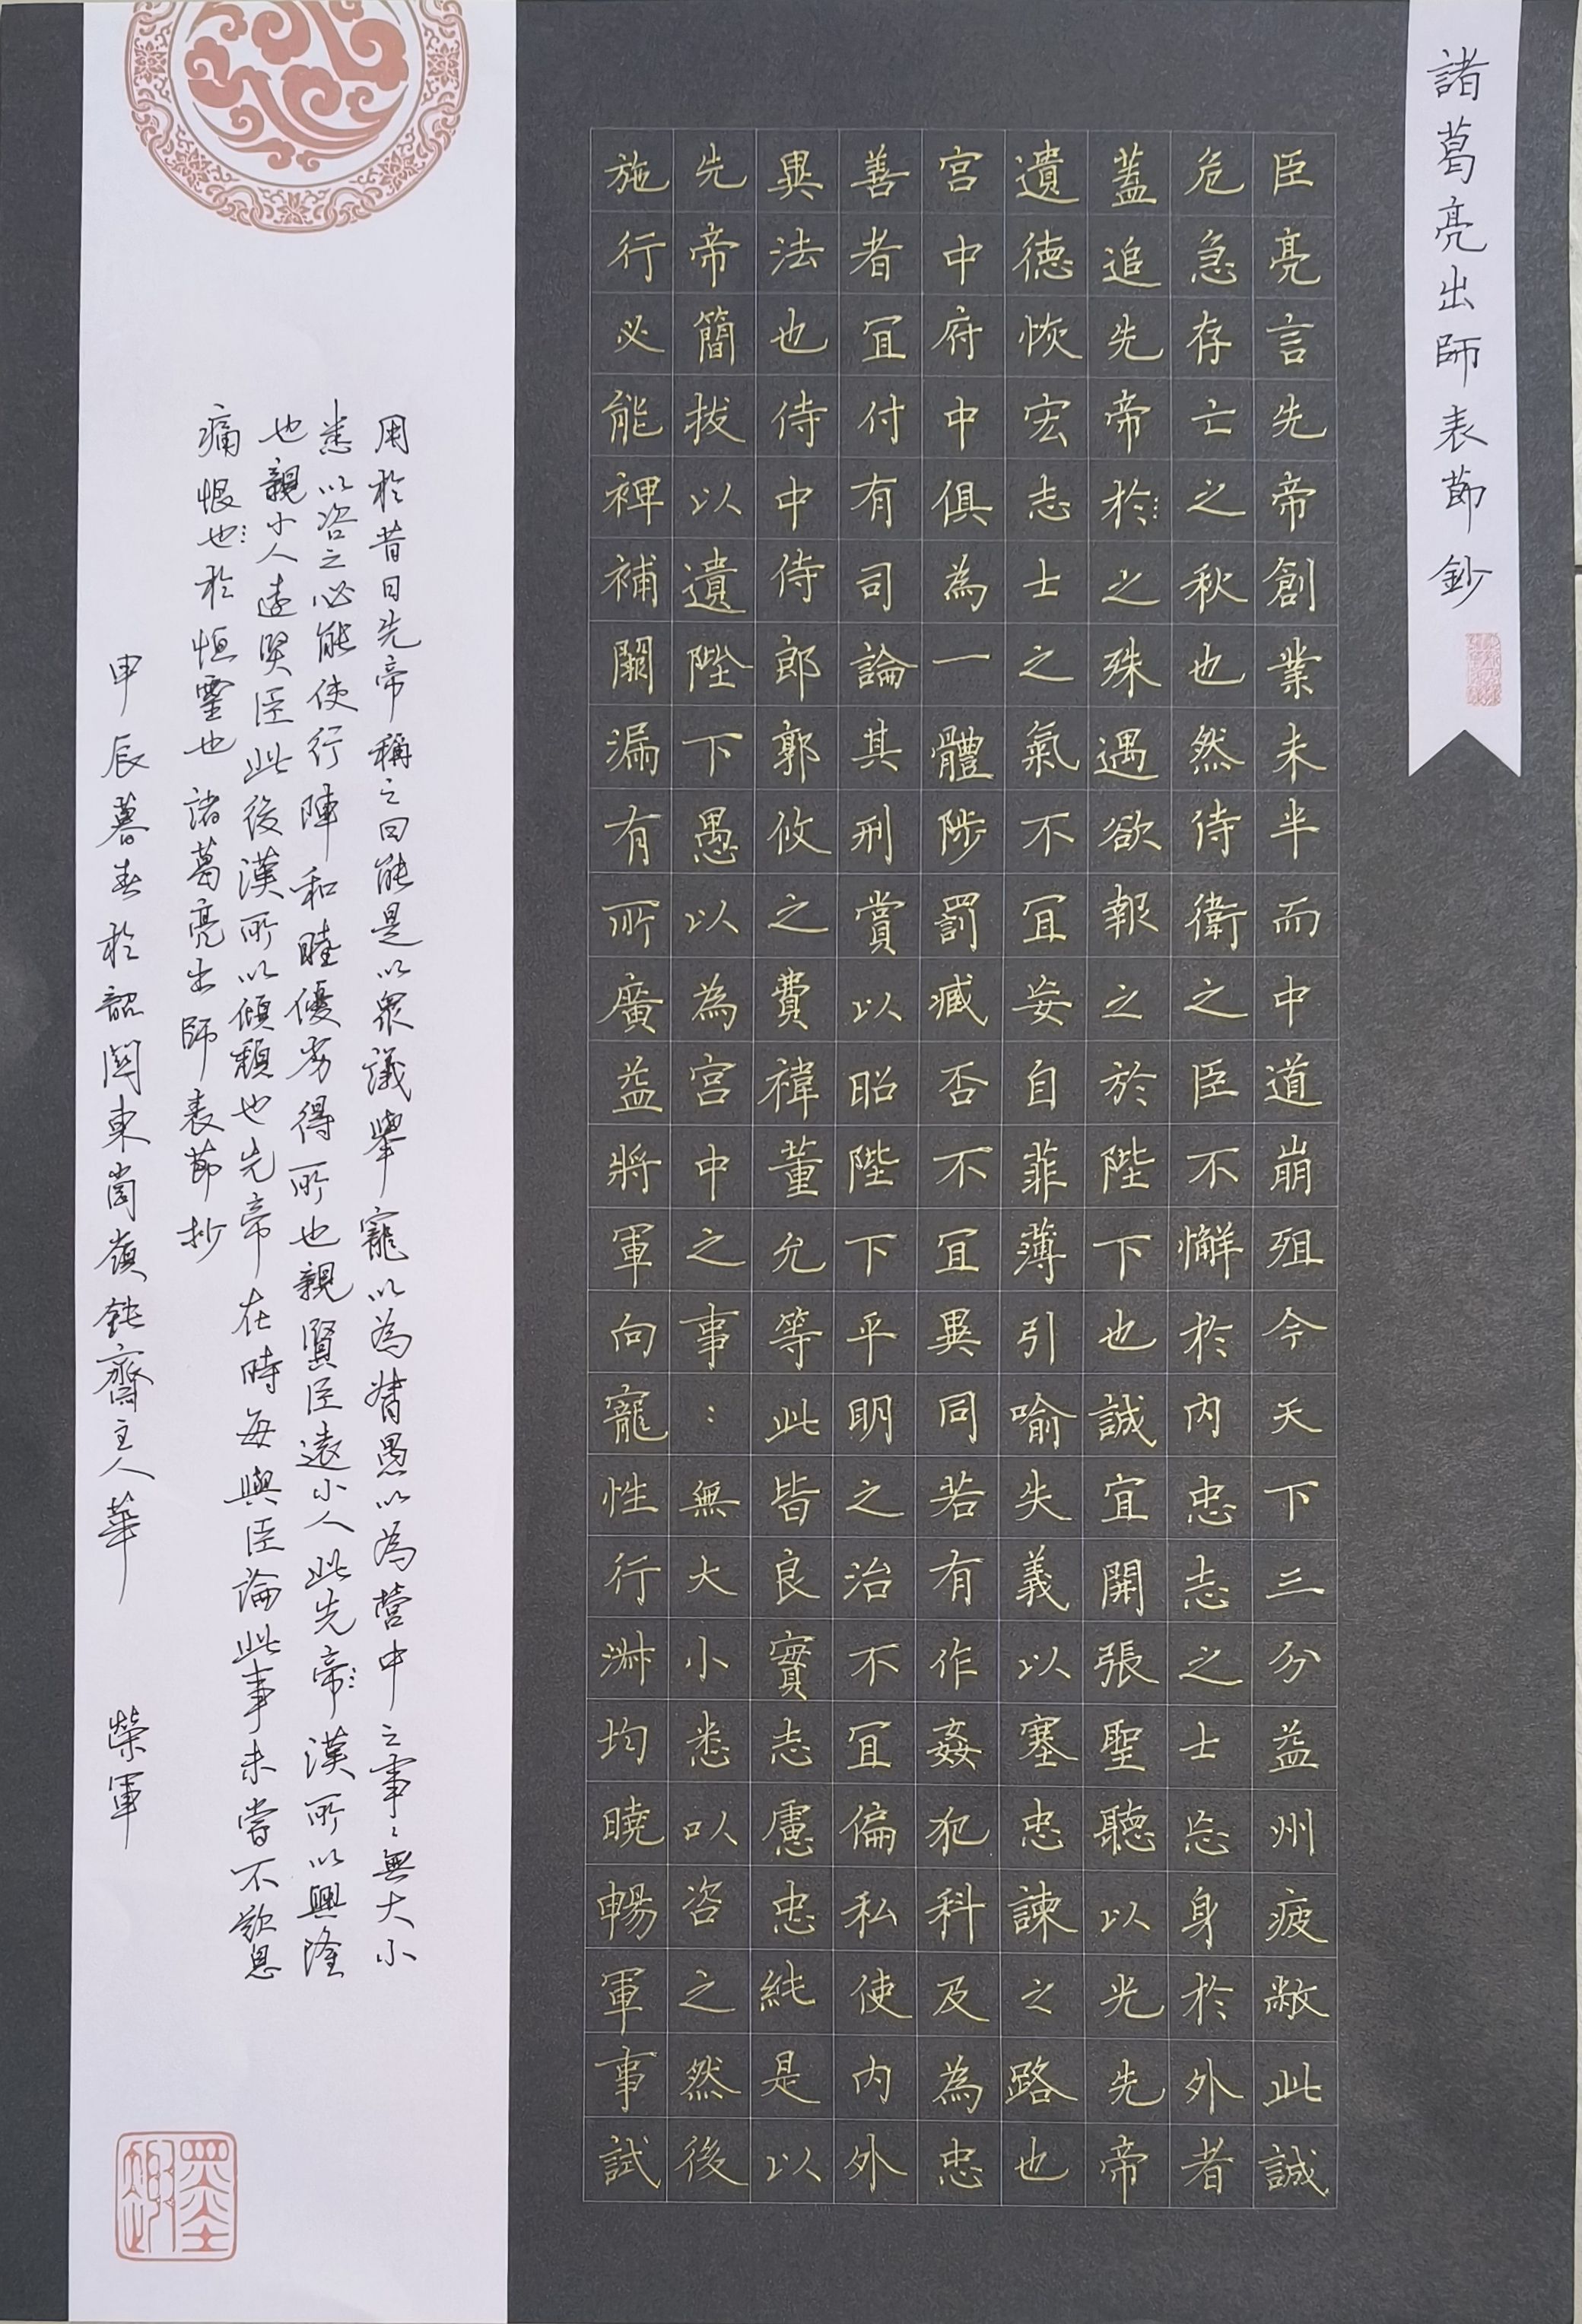 諸葛亮出師表節鈔
臣亮言先帝創業未半而中道崩殂今天下三分益州疲敝此誠
危急存亡之秋也然侍衛之臣不懈於內忠志之士忘身於外者
蓋追先帝於之殊遇欲報之於陛下也誠宜開張聖聽以光先帝
遺德恢宏志士之氣不宜妄自菲薄引喻失義以塞忠諫之路也
宮中府中俱為一體陟罰臧否不宜異同若有作姦犯科及為忠
善者宜付有司論其刑賞以昭陛下平明之治不宜偏私使內外
異法也侍中侍郎郭攸之費禕董允等此皆良實志慮忠純是以
先帝簡拔以遺陛下愚以為宮中之事：無大小悉以咨之然後
施行必能裨補闕漏有所廣益將軍向寵性行淋均曉暢軍事試
用於昔日先帝稱之曰能是以眾議舉寵以為督愚以為營中之事〻無大小
悉以咨之必能使行陣和睦優劣得所也親賢臣遠小人此先帝漢所以興隆
也親小人遠賢臣此後漢所以傾頹也先帝在時每與臣論此事未嘗不歎息
痛恨也於恒靈也 諸葛亮出師表節抄
甲辰暮春於韶關東崗嶺鈍齋主人華 榮軍
墨趣